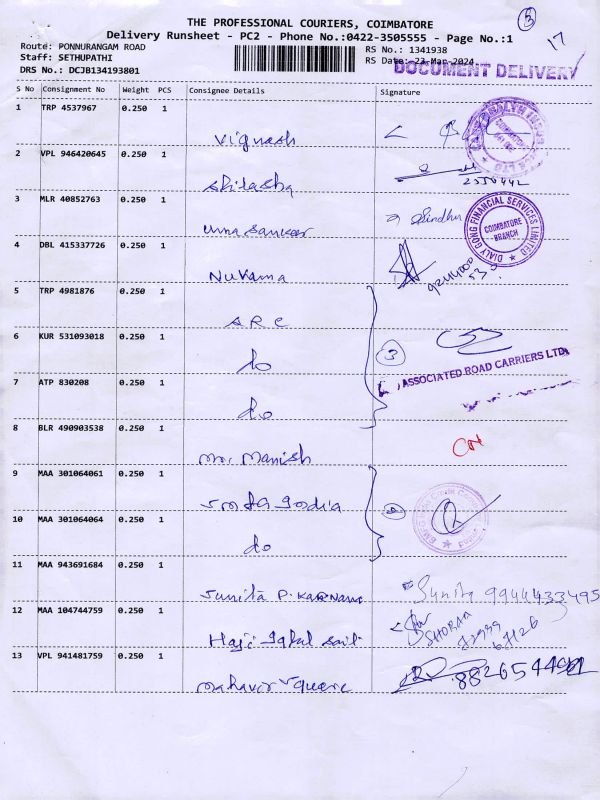 5
17
THE PROFESSIONAL COURIERS, COIMBATORE
Delivery Runsheet - PC2 - Phone No.:0422-3505555 - Page No.:1
Route: PONNURANGAM ROAD
RS No.: 1341938
Staff: SETHUPATHI
RS Date: 23-Mar-2024
DRS No.: DCJB134193801
DOCUMENT DELIVERY
S No Consignment No Weight PCS Consignee Details Signature
1 TRP 4537967 0.250 1
Vignesh
COIMBATORE
2 VPL 946420645 0.250 1
Shilasha
3 MLR 40852763 0.250 1
Uma Sankar
Sindhu
DIALY GONG FINANCIAL SERVICES LIMITED
COIMBATORE
BRANCH
4 DBL 415337726 0.250 1
Nuvama
5 TRP 4981876 0.250 1
ARC
6 KUR 531093018 0.250 1
do
3
ASSOCIATED ROAD CARRIERS LTD.
7 ATP 830208 0.250 1
do
8 BLR 490903538 0.250 1
Mr. Manish
9 MAA 301064061 0.250 1
10 MAA 301064064 0.250 1
do
2
11 MAA 943691684 0.250 1
Sunita P. Karnani
Sunita 9944433495
12 MAA 104744759 0.250 1
Haji Iqbal Sait
13 VPL 941481759 0.250 1
Mahaveer Square